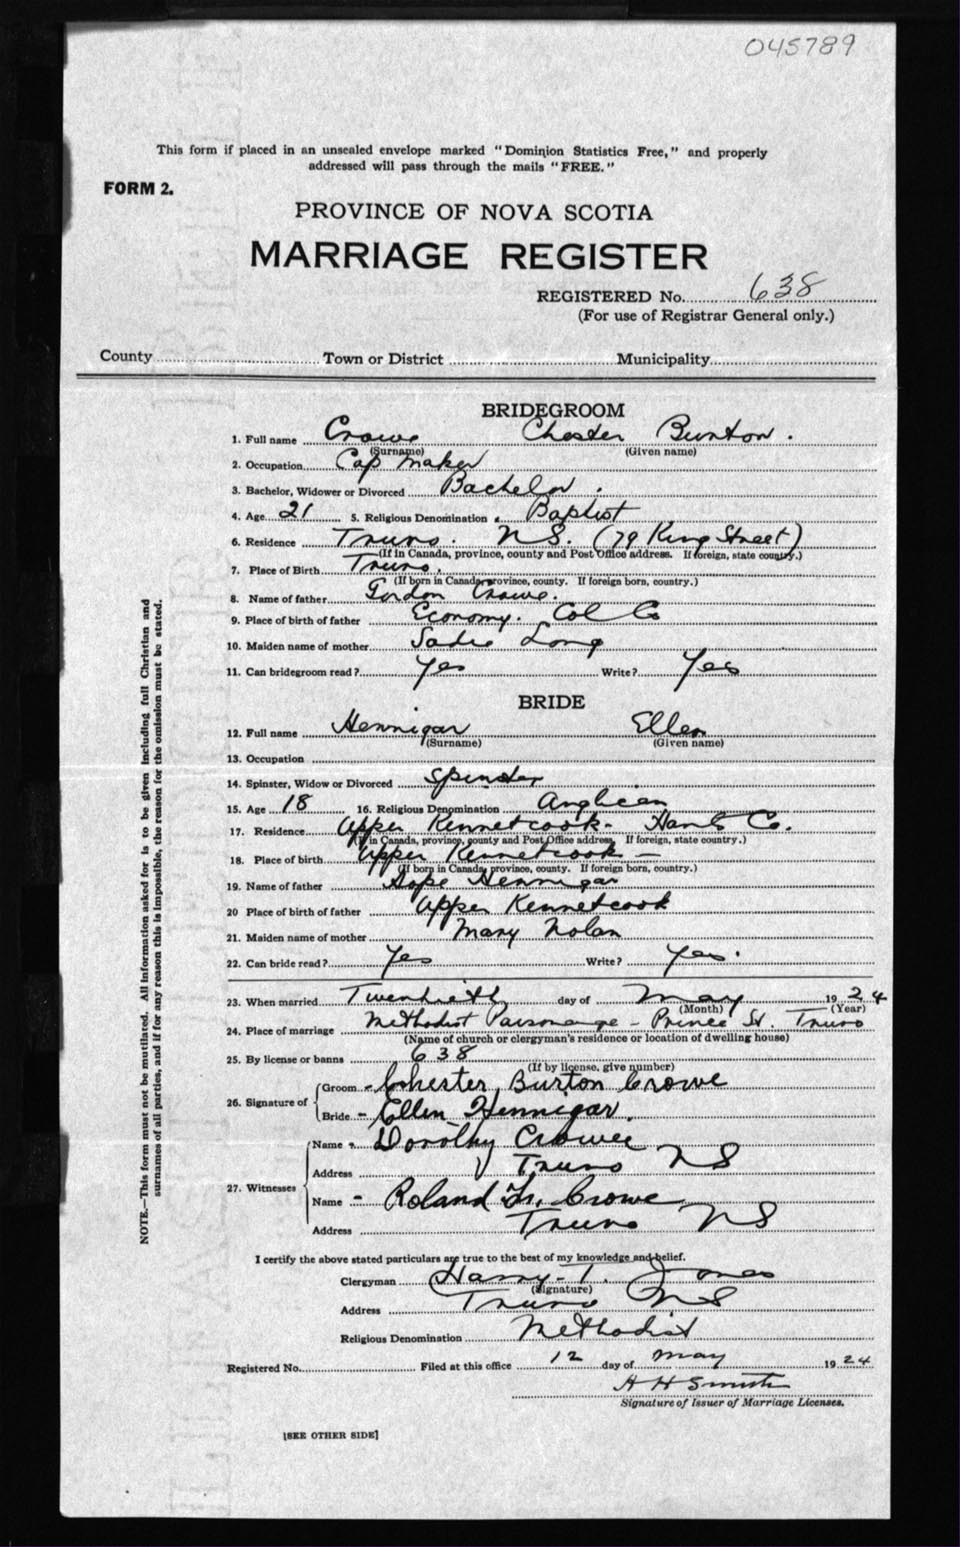 045789
This form if placed in an unsealed envelope marked "Dominion Statistics Free," and properly
addressed will pass through the mails "FREE."
FORM 2.
PROVINCE OF NOVA SCOTIA
MARRIAGE REGISTER
REGISTERED No. 638
(For use of Registrar General only.)
County Town or District Municipality
BRIDEGROOM
1. Full name Crowe Chester Burton.
(Surname) (Given name)
2. Occupation Cap maker
3. Bachelor, Widower or Divorced Bachelor.
4. Age 21 5. Religious Denomination Baptist
6. Residence Truro. N.S. (79 King Street)
(If in Canada, province, county and Post Office address. If foreign, state country.)
7. Place of Birth Truro.
(If born in Canada, province, county. If foreign born, country.)
8. Name of father Gordon Crowe.
9. Place of birth of father Economy. Col Co
10. Maiden name of mother Sadie Long
11. Can bridegroom read? Yes Write? Yes
BRIDE
12. Full name Hennigar Ellen
(Surname) (Given name)
13. Occupation
14. Spinster, Widow or Divorced Spinster
15. Age 18 16. Religious Denomination Anglican
17. Residence Upper Kennetcook - Hants Co.
(If in Canada, province, county and Post Office address. If foreign, state country.)
18. Place of birth Upper Kennetcook —
(If born in Canada, province, county. If foreign born, country.)
19. Name of father Hope Hennigar
20 Place of birth of father Upper Kennetcook
21. Maiden name of mother Mary Nolan
22. Can bride read? Yes Write? Yes.
23. When married Twentieth day of May 1924
(Month) (Year)
24. Place of marriage Methodist Parsonage - Prince St. Truro
(Name of church or clergyman's residence or location of dwelling house)
25. By license or banns 638
(If by license, give number)
26. Signature of Groom - Chester Burton Crowe
Bride - Ellen Hennigar.
27. Witnesses Name - Dorothy Crowe
Address Truro NS
Name - Roland Crowe
Address Truro NS
I certify the above stated particulars are true to the best of my knowledge and belief.
Clergyman Harry T. Jones
(Signature)
Address Truro NS
Religious Denomination Methodist
Registered No. Filed at this office 12 day of May 1924
H H Smith
Signature of Issuer of Marriage Licenses.
[SEE OTHER SIDE]
NOTE.—This form must not be mutilated. All information asked for is to be given including full Christian and
surnames of all parties, and if for any reason this is impossible, the reason for the omission must be stated.